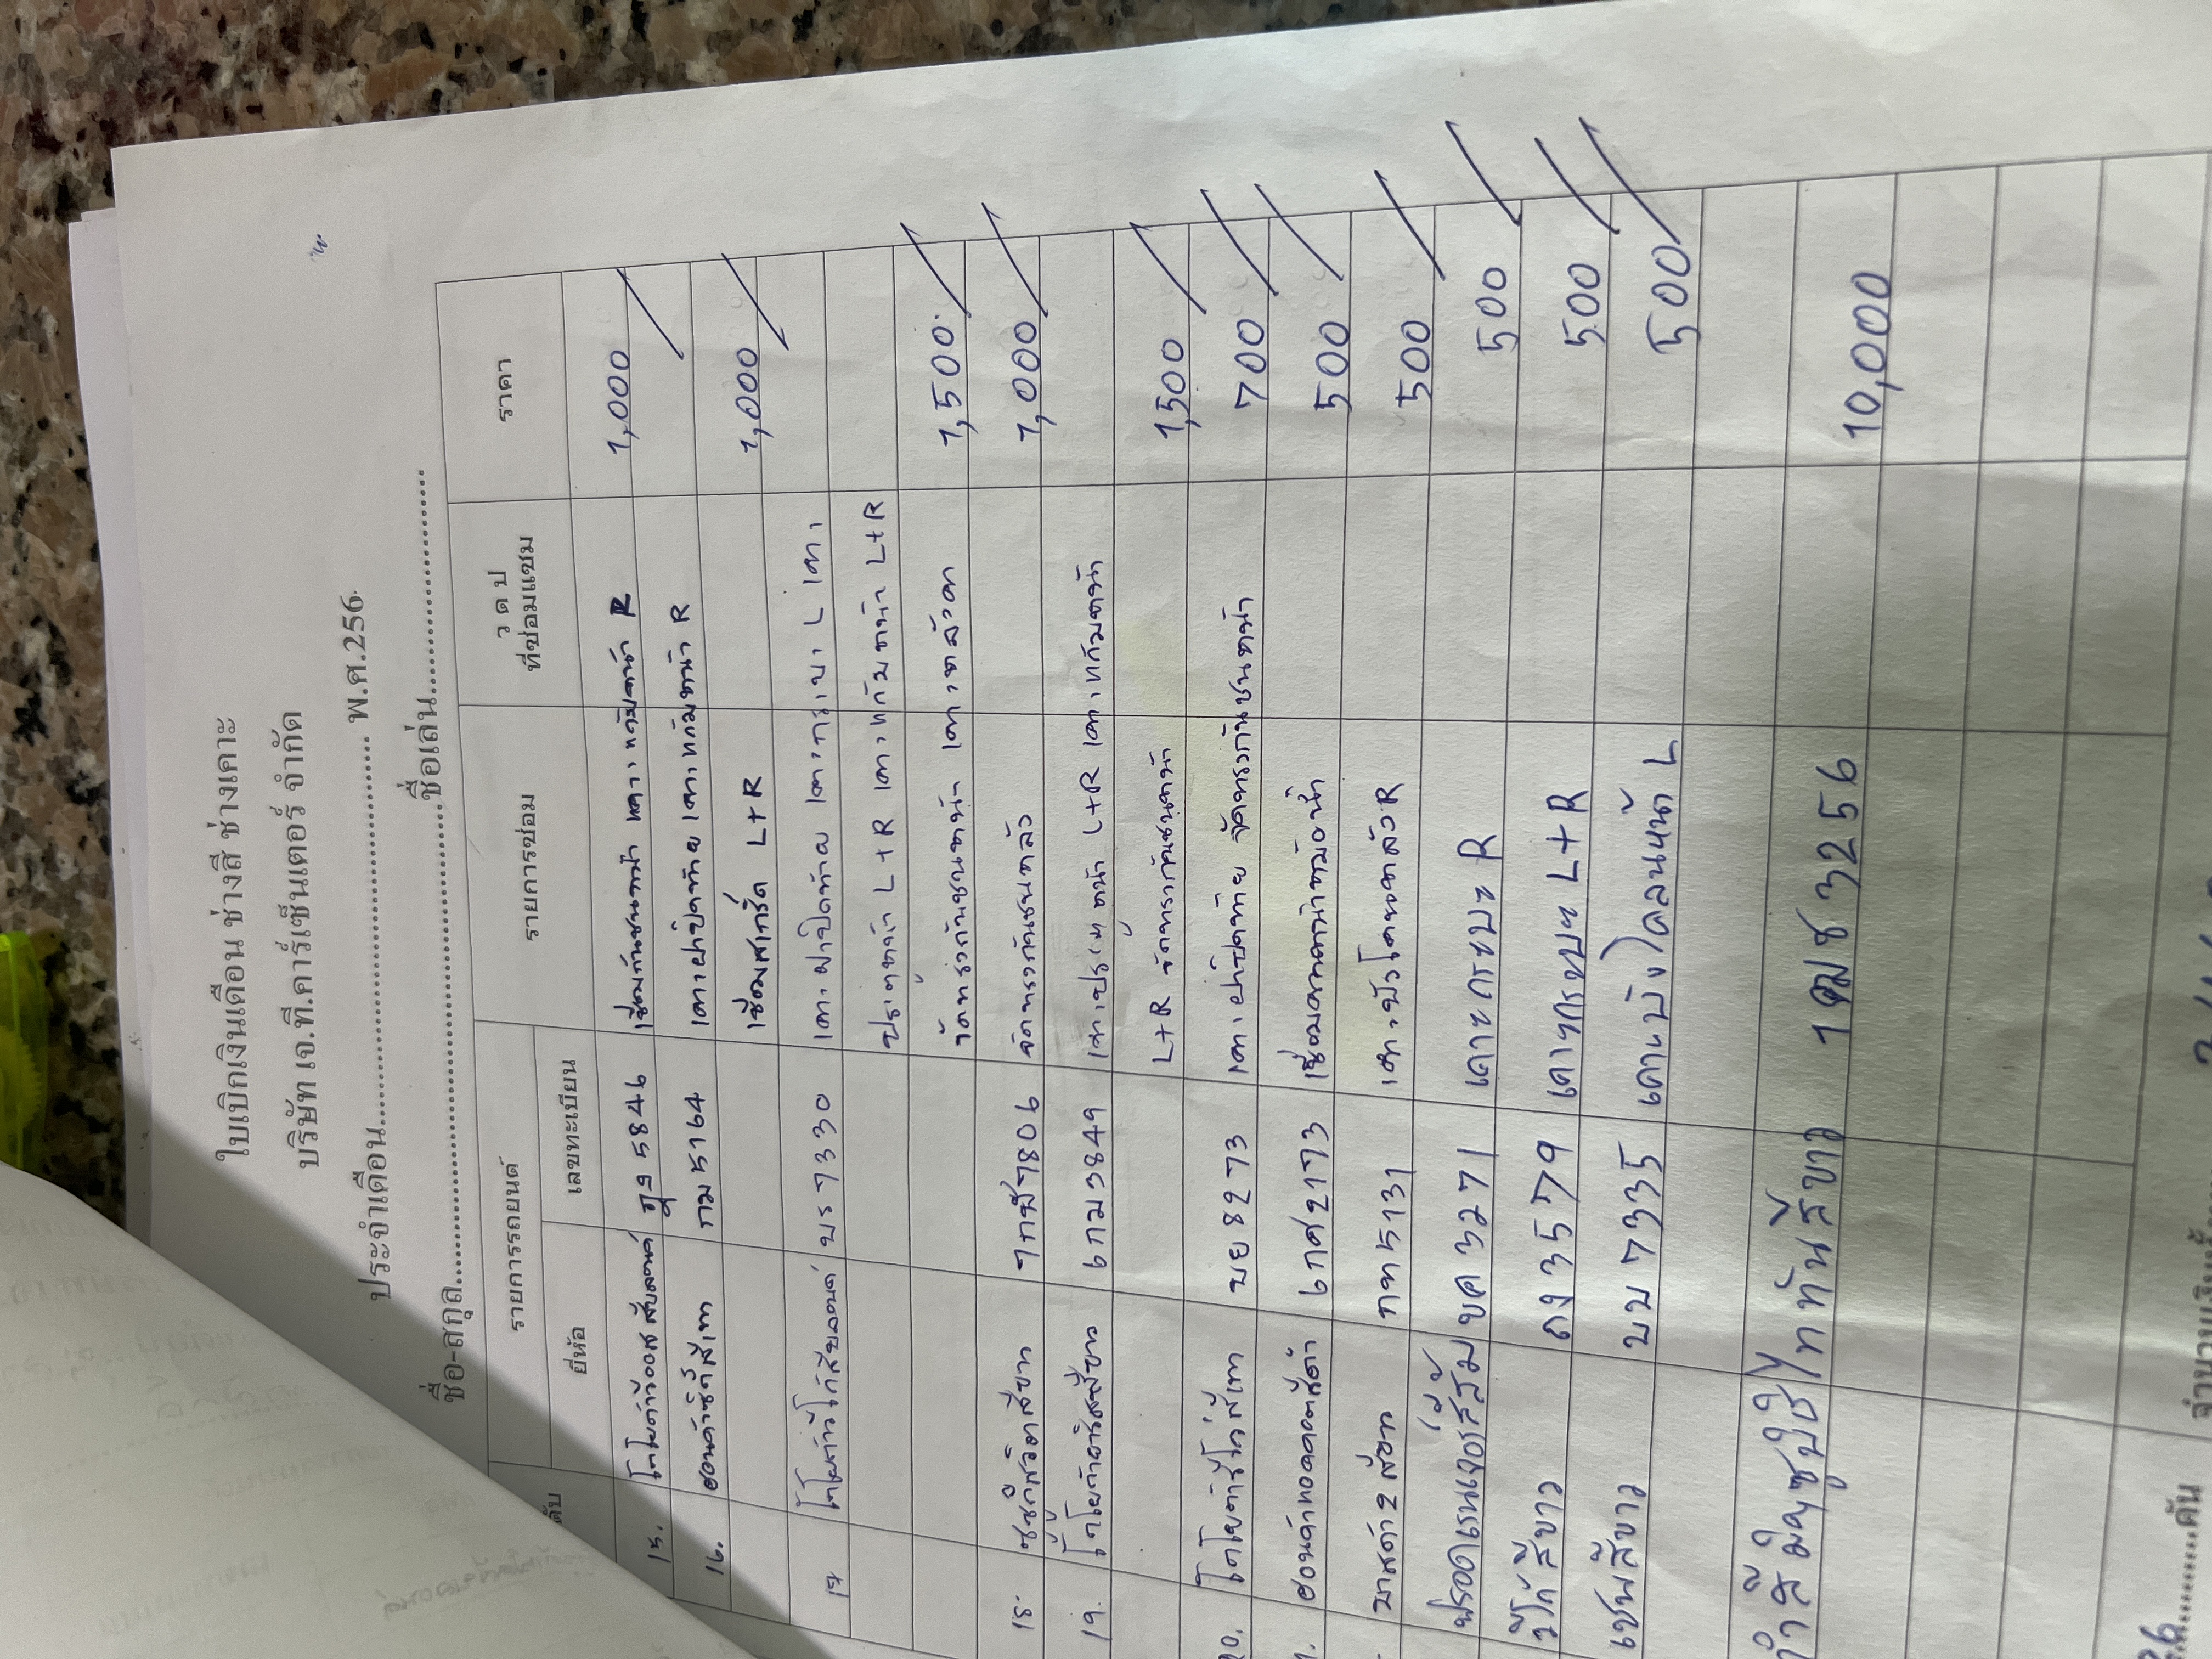 ใบเบิกเงินเดือน ช่างสี ช่างเคาะ
บริษัท เจ.ที.คาร์เซ็นเตอร์ จำกัด
ประจำเดือน.......................................................... พ.ศ.256
ชื่อ-สกุล..........................................................ชื่อเล่น..............................
รายการรถยนต์ รายการซ่อม ว ด ป ที่ซ่อมแซม ราคา
ยี่ห้อ เลขทะเบียน
15. โตโยต้าวีออส สีบลอนด์ 5846 เชื่อมกันชนหน้า เคาะแก้มหน้า R 1,000
16. ฮอนด้าซิตี้สีเทา กม 5164 เคาะฝาปิดท้าย เคาะแก้มหน้า R
เชื่อมสเกิร์ต L+R 1,000
17 โตโยต้าวีโก้สีบลอนด์ บร 7330 เคาะฝาปิดท้าย เคาะกระบะ L เคาะ
ประตูหน้า L+R เคาะแก้มหน้า L+R
จัดทรงกันชนหน้า เคาะหลังคา 1,500
18. ซูซูกิสวิตสีขาว 7806 จัดทรงกันชนหลัง 1,000
19. โตโยต้ายาริสสีขาว 6กม3849 เคาะประตูหน้า L+R เคาะแก้มหน้า
L+R จัดทรงกันชนหน้า 1,500
20. โตโยต้ารีโว่สีเทา บย 8273 เคาะฝาปิดท้าย จัดทรงกันชนหน้า 700
ฮอนด้าแอคคอดสีดำ 6กศ2173 เชื่อมคานหน้าหม้อน้ำ 500
มาสด้า 2 สีแดง กท 5131 เคาะบังโคลนหลัง R 500
ฟรอดเรนเจอร์สีส้ม ขค 3271 เคาะกระบะ R 500
วีโก้ สีขาว ถง 3579 เคาะกระบะ L+R 500
เชฟสีขาว บบ 7335 เคาะบังโคลนหน้า L 500
ทำสีมิตซูบิชิไททันสีขาว 1ฒช 3256 10,000
26..........คัน